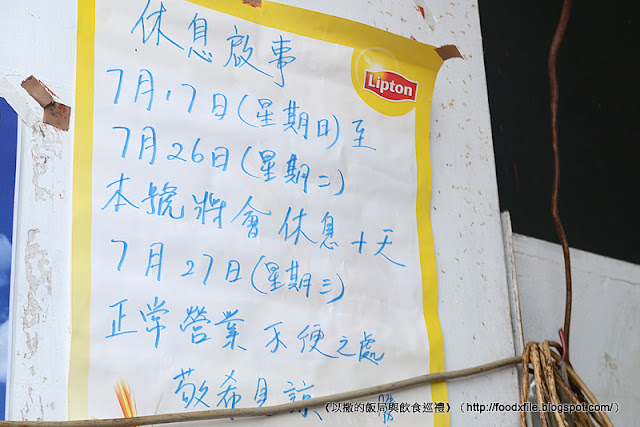 休息啟事
Lipton
7月17日(星期日)至
7月26日(星期二)
本號將會休息十天
7月27日(星期三)
正常營業 不便之處
敬希見諒
《以撒的飯局與飲食巡禮》 (http://foodxfile.blogspot.com/)